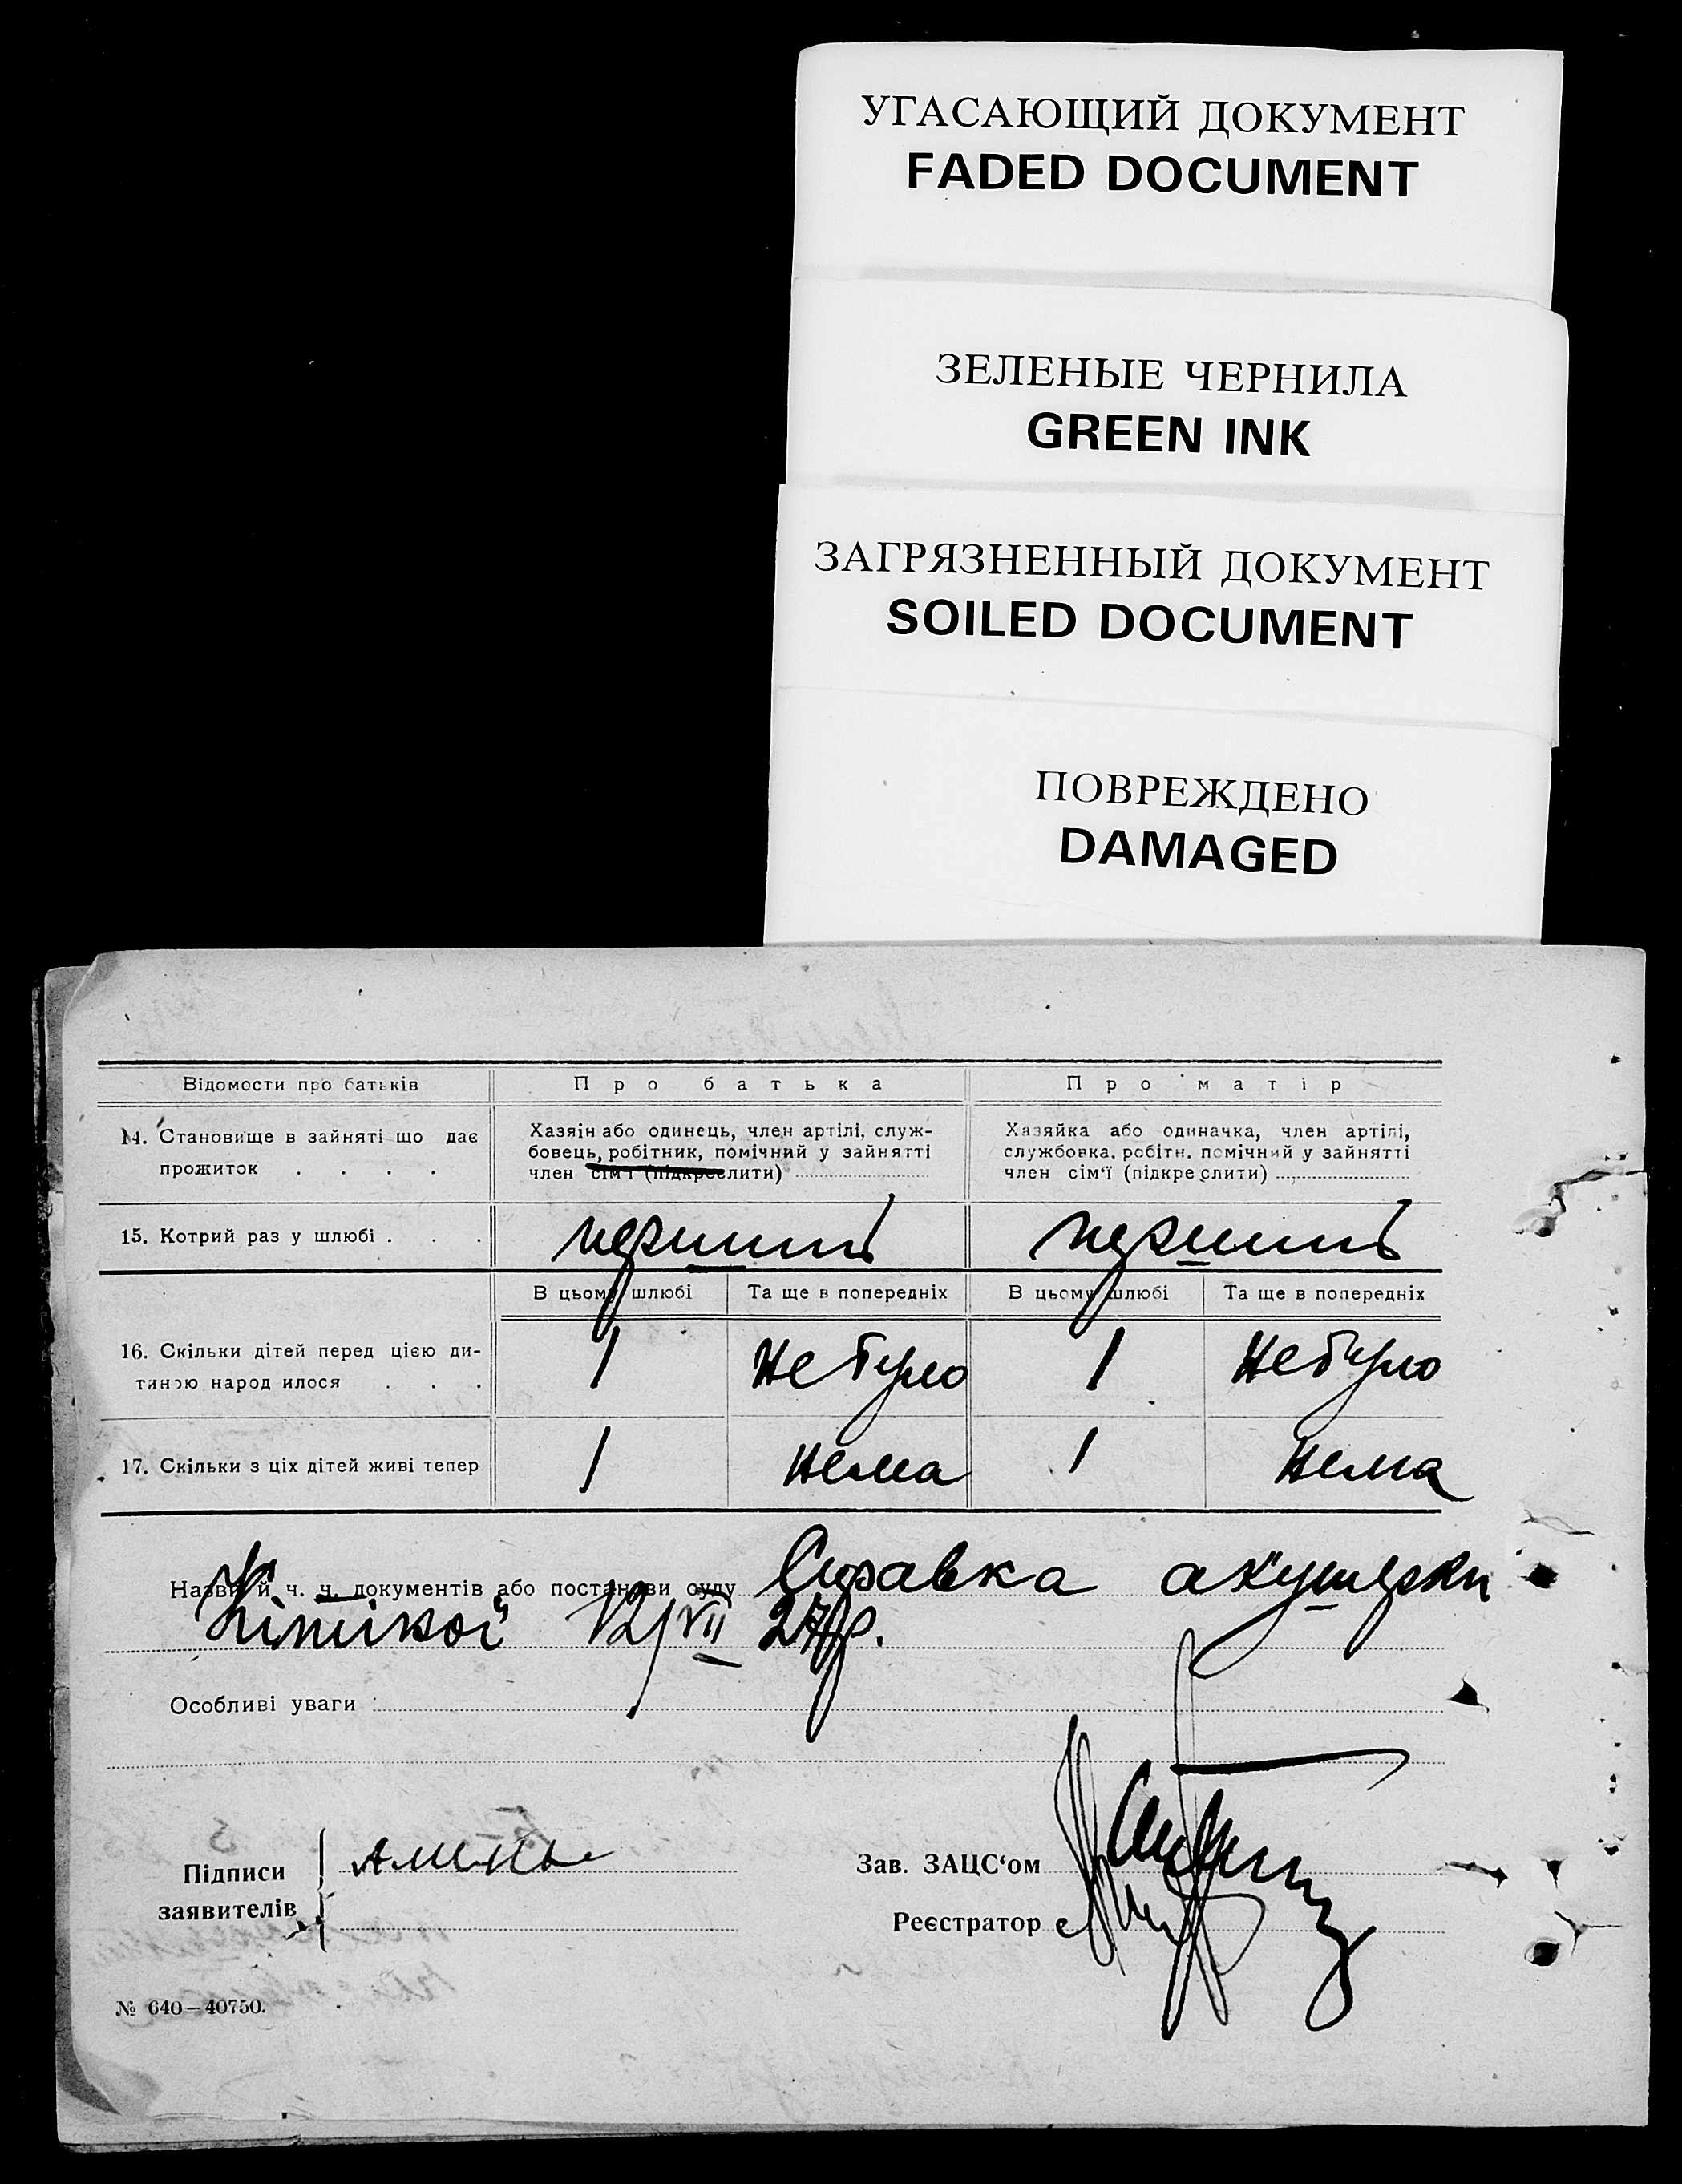 УГАСАЮЩИЙ ДОКУМЕНТ
FADED DOCUMENT
ЗЕЛЕНЫЕ ЧЕРНИЛА
GREEN INK
ЗАГРЯЗНЕННЫЙ ДОКУМЕНТ
SOILED DOCUMENT
ПОВРЕЖДЕНО
DAMAGED
Відомости про батьків
Про батька
Про матір
14. Становище в зайняті що дає
прожиток . . . .
Хазяін або одинець, член артілі, служ-
бовець, робітник, помічний у зайнятті
член сім'ї (підкреслити)
Хазяйка або одиначка, член артілі,
службовка, робітн. помічний у зайнятті
член сім'ї (підкреслити)
15. Котрий раз у шлюбі . . .
перший
перший
В цьому шлюбі
Та ще в попередніх
В цьому шлюбі
Та ще в попередніх
16. Скільки дітей перед цією ди-
тиною народилося . . .
1
не було
1
не було
17. Скільки з ціх дітей живі тепер
1
нема
1
нема
Назви й ч. ч. документів або постанови суду Справка акушерки
12/VII 27 р.
Особливі уваги
Підписи
заявителів
Зав. ЗАЦС'ом
Реєстратор
№ 640—40750.